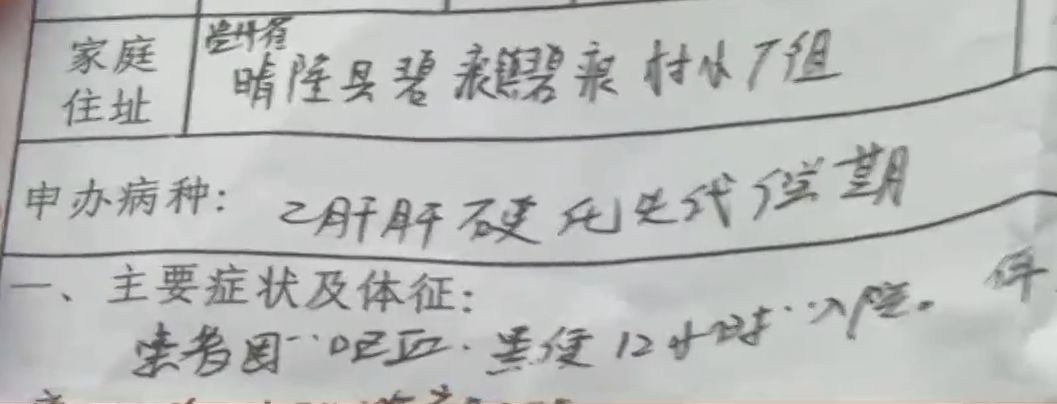 家庭住址
晴隆县碧痕镇碧痕村水丁组
申办病种：乙肝肝硬化失代偿期
一、主要症状及体征：
患者因"呕血、黑便12小时"入院。